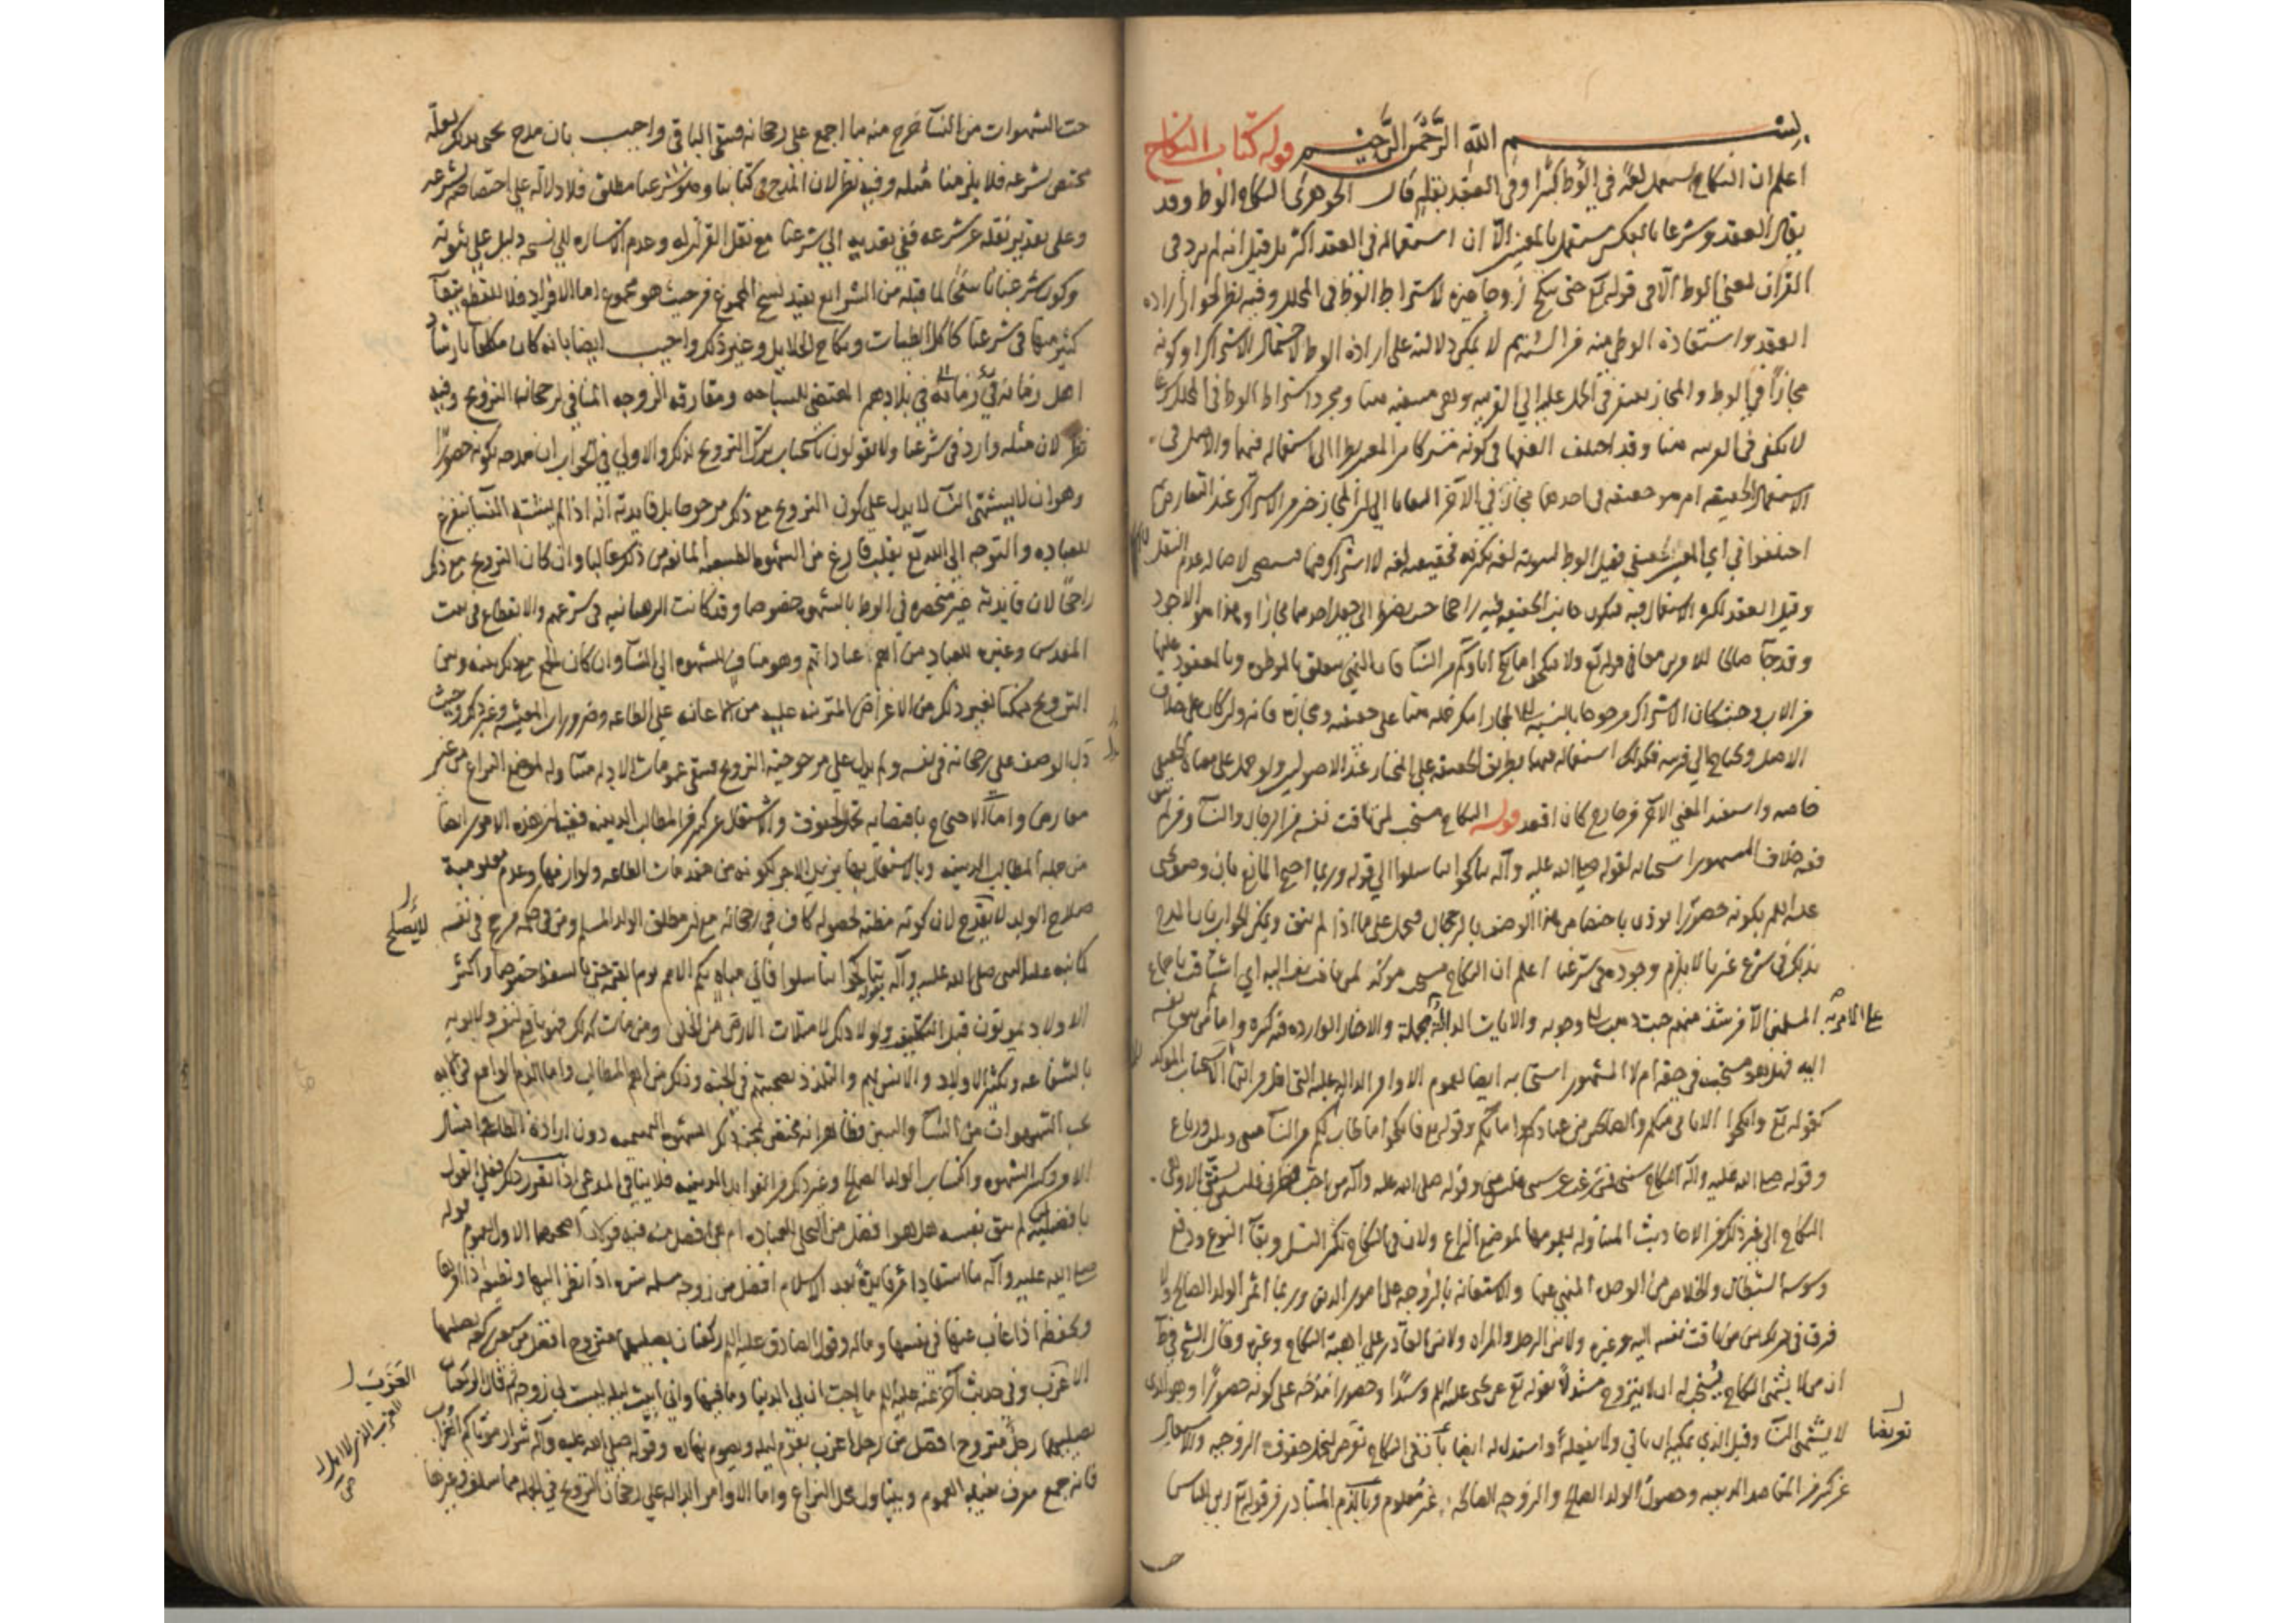 بسم الله الرحمن الرحيم قوله كتاب النكاح
اعلم ان النكاح يستعمل لغة في الوطئ كثيرا وفي العقد بقلة قال الجوهري النكاح الوطئ وقد
يقال العقد وشرعا بالعكس يستعمل بالمعنيين الا ان استعماله في العقد اكثر بل قيل انه لم يرد في
القران بمعنى الوطئ الا في قوله تع حتى تنكح زوجا غيره لاشتراط الوطئ في المحلل وفيه نظر لجواز ارادة
العقد واستفادة الوطئ منه من السنة لا يمكن دلالته على ارادة الوطئ لاحتمال الاشتراك او كونه
مجازا في الوطئ والمجاز يفتقر في الحمل عليه الى القرينة وهي منتفية هنا ومجرد اشتراط الوطئ في المحلل شرعا
لا يكفي في القرينة هنا وقد اختلف الفقها في كونه مشتركا بين المعنيين نظرا الى استعماله فيهما والاصل في
الاستعمال الحقيقة ام هو حقيقة في احدهما مجاز في الاخر التفاتا الى ان المجاز خير من الاشتراك عند التعارض ثم
اختلفوا في اي المعنيين الحقيقي فقيل الوطئ لثبوته لغة بكثرة فحقيقته لغة لا اشتراك فيها فيستصحب لاصالة عدم النقل
وقيل العقد لكثرة الاستعمال فيه فيكون جانب الحقيقة فيه راجحا حيث يضطر الى جعل احدهما مجازا وهذا هو الاجود
وقد جاء صالحا للامرين معا في قوله تع ولا تنكحوا ما نكح اباؤكم من النساء فان النهي يتعلق بالموطوءة وبالمعقود عليها
من الاب وحيث كان الاشتراك مرجوحا بالنسبة الى المجاز امكن حمله هنا على حقيقته ومجازه فانه وان كان على خلاف
الاصل ويحتاج الى قرينة فكذلك استعماله فيهما بطريق الحقيقة على المختار عند الاصوليين ولو حمل على معناه الحقيقي
خاصة واستفيد المعنى الاخر من خارج كان اقعد قوله النكاح مستحب لمن تاقت نفسه من الرجال والنساء ومن لم تتق
فيه خلاف المشهور استحبابه لقوله صلى الله عليه وآله تناكحوا تناسلوا الى قوله وربما احتج المانع بان وصف يحيى
عليه السلم بكونه حصورا يؤذن باختصاص هذا الوصف بالرجحان فيحمل على ما اذا لم تتق ويمكن الجواب بان المدح
بذلك في شرع غيرنا لا يلزم وجوده في شرعنا اعلم ان النكاح مستحب مؤكد لمن تاقت نفسه اليه اي اشتاقت باجماع
المسلمين الا من شذ منهم حيث ذهب الى وجوبه والايات الدالة مجملة والاخبار الواردة فيه كثيرة واما من لم تتق نفسه
اليه فهل هو مستحب في حقه ام لا المشهور استحبابه ايضا لعموم الاوامر الدالة عليه التي اقل مراتبها الاستحباب المؤكد
كقوله تع وانكحوا الايامى منكم والصالحين من عبادكم وامائكم وقوله تع فانكحوا ما طاب لكم من النساء مثنى وثلاث ورباع
وقوله صلى الله عليه واله النكاح سنتي فمن رغب عن سنتي فليس مني وقوله صلى الله عليه واله من احب فطرتي فليستن بسنتي الا وهي
النكاح الى غير ذلك من الاحاديث المتناولة بعمومها لموضع النزاع ولان في النكاح تكثير النسل وبقاء النوع ودفع
وسوسة الشيطان والخلاص من الوحدة المنهي عنها والاستعانة بالزوجة على امور الدين وربما اثمر الولد الصالح ولا
فرق في ذلك بين من تاقت نفسه اليه وغيره ولا بين الرجل والمراة ولا بين القادر على اهبة النكاح وغيره وقال الشيخ في ط
ان من لا يشتهي النكاح يستحب له ان لا يتزوج مستدلا بقوله تع عن يحيى عليه السلم وسيدا وحصورا فمدحه على كونه حصورا وهو الذي
لا يشتهي النساء وقيل الذي يمكنه ان ياتي ولا يفعله واستدل له ايضا بان في النكاح تعرضا لتحمل حقوق الزوجية والاشتغال
عن كثير من المقاصد الدينية وحصول الولد الصالح والزوجة الصالحة غير معلوم وبالذم المتبادر من قوله تع زين للناس
تعريضا
حب الشهوات من النساء خرج منه ما اجمع على رجحانه فيبقى الباقي واجيب بان مدح يحيى بذلك لعله
مختص بشرعه فلا يلزم منا مثله وفيه نظر لان المدح في كتابنا وهو شرعنا مطلق فلا دلالة على اختصاصه بشرعه
وعلى تقدير نقله عن شرعه ففي تعديه الى شرعنا مع نقل القران له وعدم الاشارة الى نسخه دليل على ثبوته
وكون شرعنا ناسخا لما قبله من الشرائع يفيد نسخ المجموع من حيث هو مجموع اما الافراد فلا للقطع ببقاء
كثير منها في شرعنا كاكل الطيبات ونكاح الحلايل وغير ذلك واجيب ايضا بانه كان مكلفا بارشاد
اهل زمانه في بلادهم المقتضي للسياحة ومفارقة الزوجة المنافي لرجحان التزويج وفيه
نظر لان مثله وارد في شرعنا ولا يقولون باستحباب ترك التزويج لذلك والاولى في الجواب ان مدحه بكونه حصورا
وهو ان لا يشتهي النساء لا يدل على كون التزويج مع ذلك مرجوحا بل فايدته انه اذا لم يشته النساء يتفرغ
للعبادة والتوجه الى الله تع بقلب فارغ من الشهوة الطبيعية المانعة من ذلك غالبا وان كان التزويج مع ذلك
راجحا لان فايدته غير منحصرة في الوطئ بالشهوة خصوصا وقد كانت الرهبانية في شرعهم والانقطاع في بيت
المقدس وغيره للعباد من اهم عباداتهم وهو مناف للشهوة الى النساء وان كان الجمع مع ذلك بينه وبين
التزويج ممكنا لغير ذلك من الاغراض المترتبة عليه من الاعانة على الطاعة وضرورات المعيشة وغير ذلك وحيث
دل الوصف على رجحانه في نفسه ولم يدل على مرجوحية التزويج فيبقى عمومات الادلة متناولة لموضع النزاع من غير
معارض واما الاحتجاج باقتضائه تحمل الحقوق والاشتغال عن كثير من المطالب الدينية ففيه ان هذه الامور ايضا
من جملة المطالب الدينية وبالاشتغال بها يزيد الاجر لكونه من مقدمات الطاعة ولوازمها وعدم معلومية
صلاح الولد لا يقدح لان كونه مظنة لحصوله كاف في رجحانه مع ان مطلق الولد المسلم ومن في حكمه مرجح في نفسه
كما نبه عليه النبي صلى الله عليه وآله بقوله تناكحوا تناسلوا فاني مباه بكم الامم يوم القيمة حتى بالسقط خصوصا واكثر
الاولاد يموتون قبل التكليف ولولا ذلك لامتلات الارض من الخلق ومن مات كذلك فهو نافع لنفسه ولابويه
بالشفاعة وتكثير الاولاد والانس بهم والتلذذ بصحبتهم في الجنة وذلك من اهم المطالب واما الذم الواقع في الاية
بحب الشهوات من النساء والبنين فظاهر انه مختص بمحبة ذلك للشهوة البهيمية دون ارادة الطاعة وامتثال
الامر وكسر الشهوة واكتساب الولد الصالح وغير ذلك من الفوايد الدينية فلا ينافي المدعى اذا تقرر ذلك فعلى القول
بافضليته لمن لم تتق نفسه هل هو افضل من التخلي للعبادة ام هي افضل منه فيه قولان اصحهما الاول لعموم قوله
صلى الله عليه وآله ما استفاد امرؤ فايدة بعد الاسلام افضل من زوجة مسلمة تسره اذا نظر اليها وتطيعه اذا امرها
وتحفظه اذا غاب عنها في نفسها وماله وقول الصادق عليه السلم ركعتان يصليهما متزوج افضل من سبعين ركعة يصليها
الاعزب وفي حديث اخر عنه عليه السلم ما احب ان لي الدنيا وما فيها واني ابيت ليلة ليست لي زوجة ثم قال الركعتان
يصليهما رجل متزوج افضل من رجل اعزب يقوم ليله ويصوم نهاره وقوله صلى الله عليه وآله شرار موتاكم العزاب
فانه جمع معرف يفيد العموم ويتناول محل النزاع واما الاوامر الدالة على رجحان التزويج في الجملة مما سلف وغيرها
لا يصلح
العزب